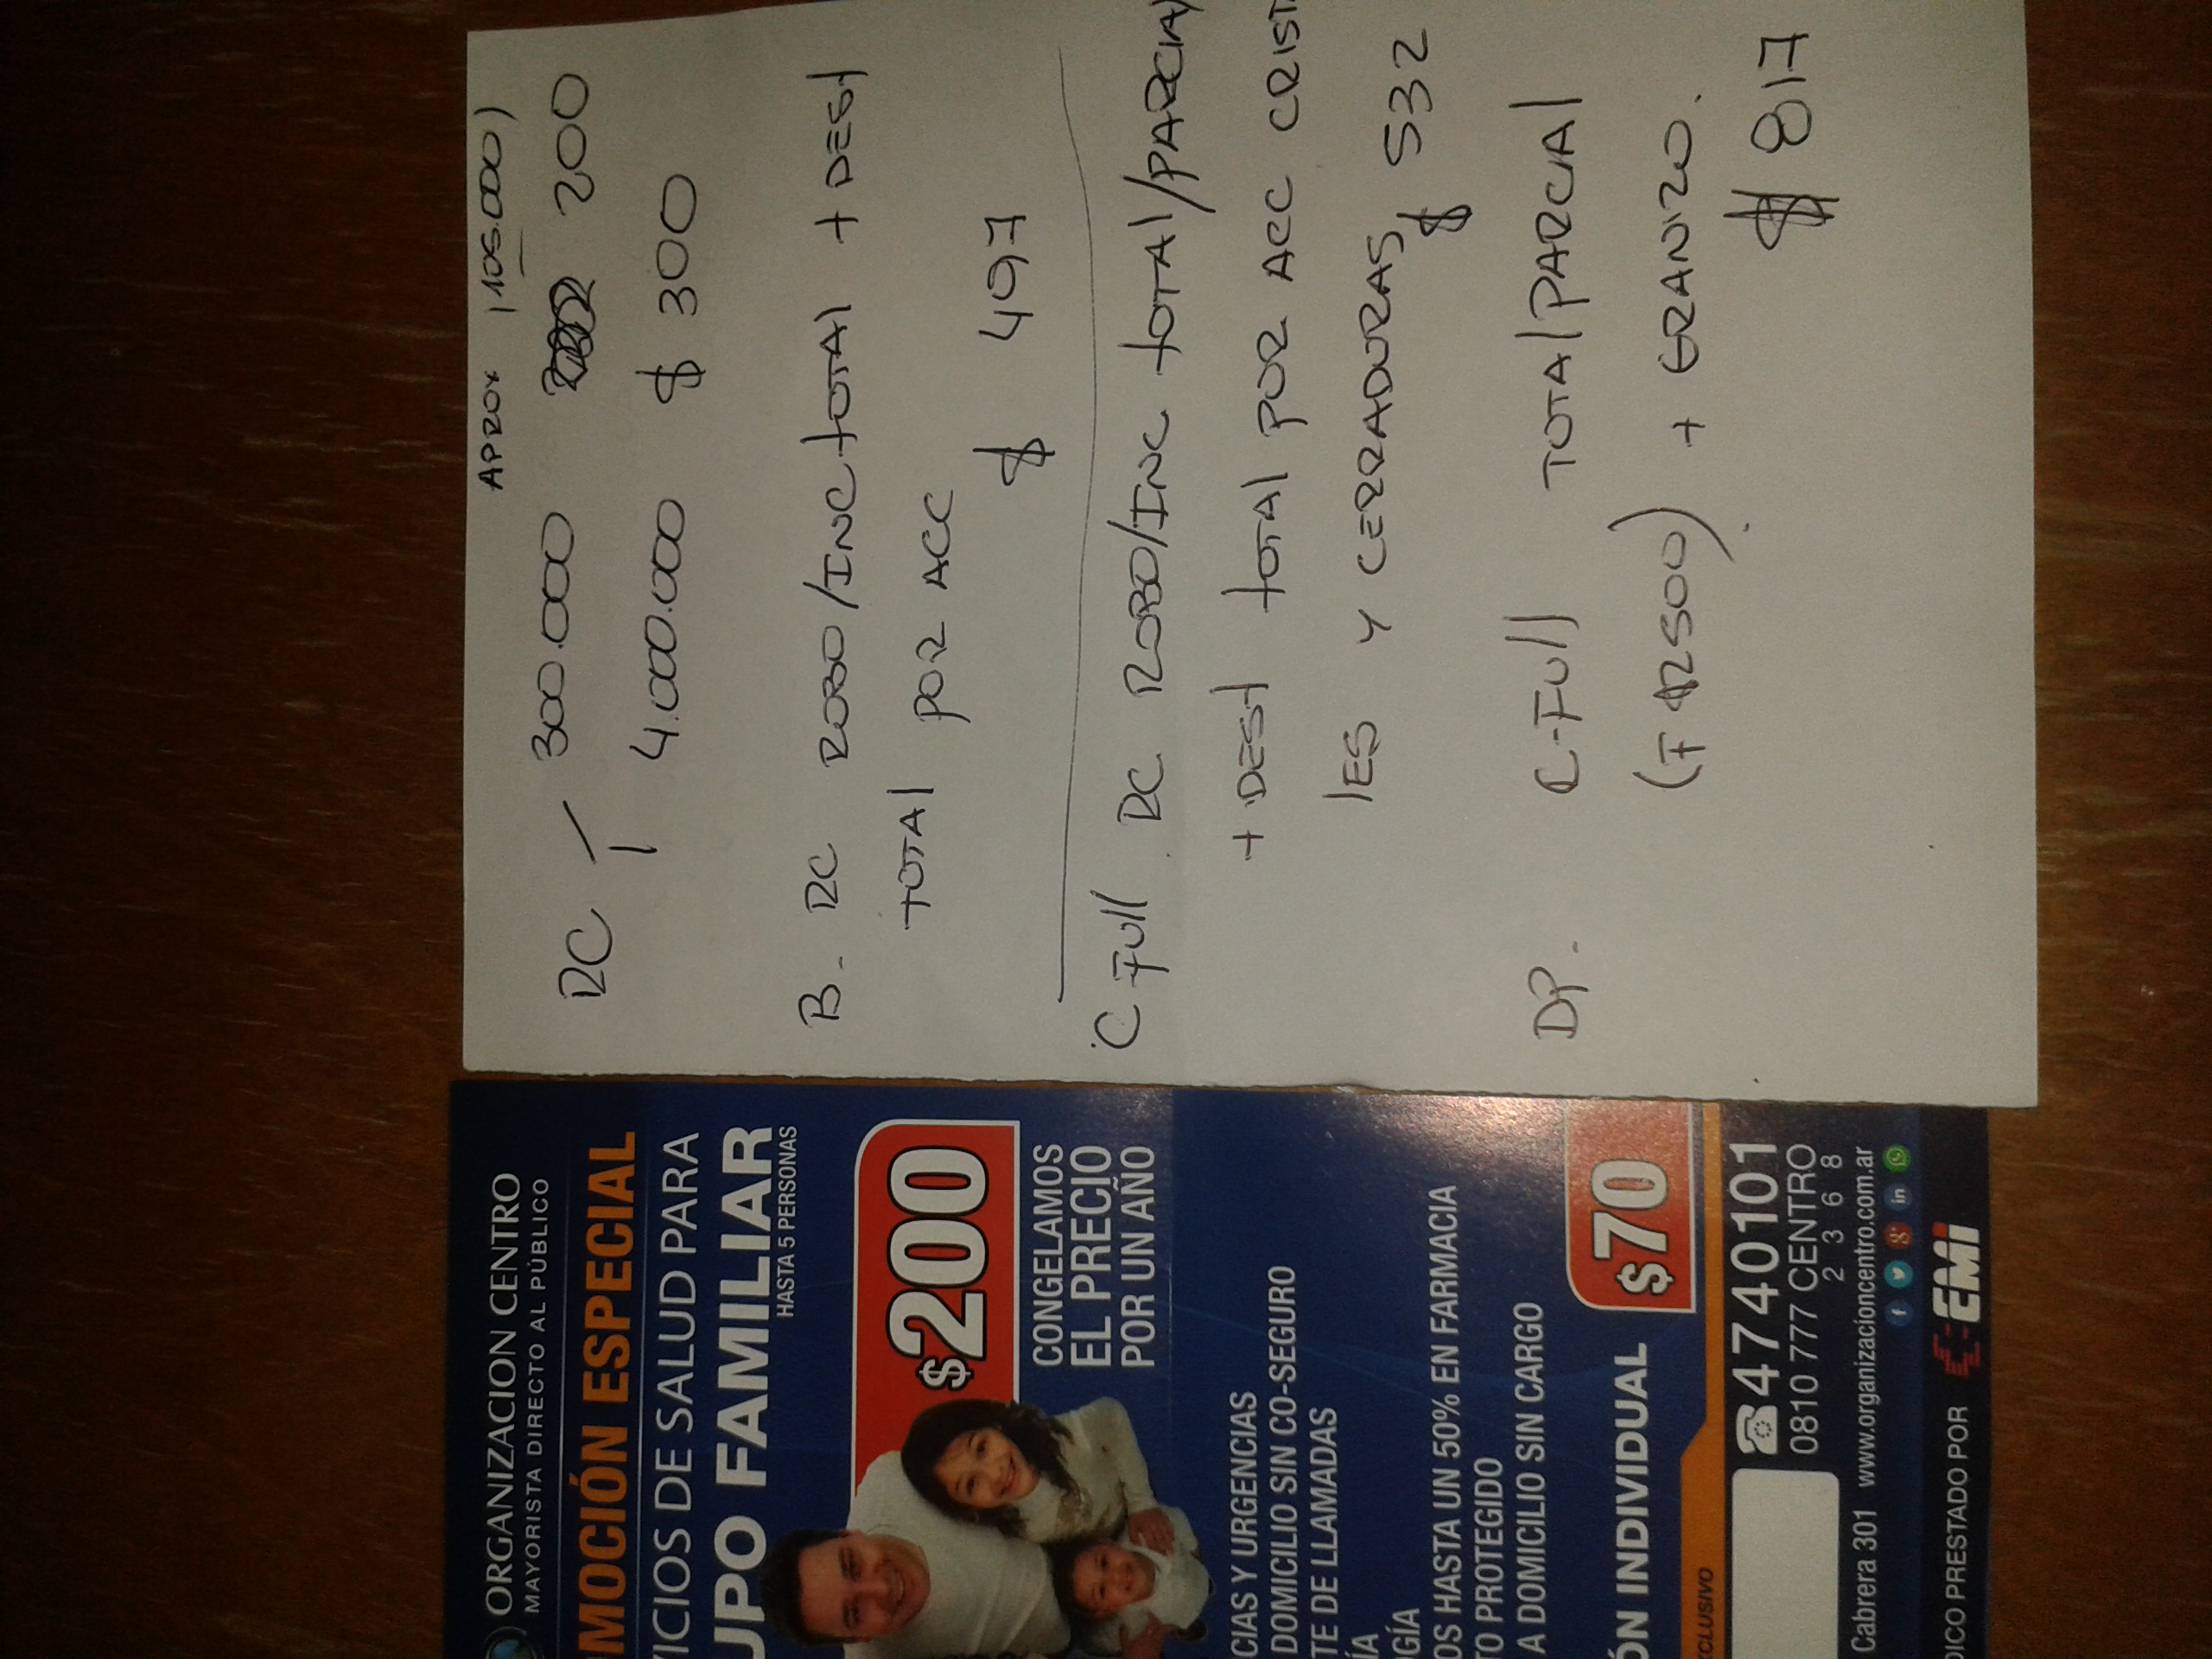 ORGANIZACION CENTRO
MAYORISTA DIRECTO AL PÚBLICO
OMOCIÓN ESPECIAL
VICIOS DE SALUD PARA
UPO FAMILIAR
HASTA 5 PERSONAS
$200
CONGELAMOS
EL PRECIO
POR UN AÑO
CIAS Y URGENCIAS
DOMICILIO SIN CO-SEGURO
TE DE LLAMADAS
ÍA
OGÍA
OS HASTA UN 50% EN FARMACIA
TO PROTEGIDO
A DOMICILIO SIN CARGO
ÓN INDIVIDUAL $70
XCLUSIVO
4740101
0810 777 CENTRO
2 3 6 8
Cabrera 301 www.organizacioncentro.com.ar
DICO PRESTADO POR EMI
APROX (105.000)
RC 300.000 200
4.000.000 $ 300
B. RC ROBO/INC TOTAL + DEST
TOTAL POR ACC
$ 497
C Full RC ROBO/INC TOTAL/PARCIAL
+ DEST TOTAL POR ACC CRISTA
LES Y CERRADURAS $ 532
DP. C-Full TOTAL PARCIAL
(F $2500) + GRANIZO.
$ 817